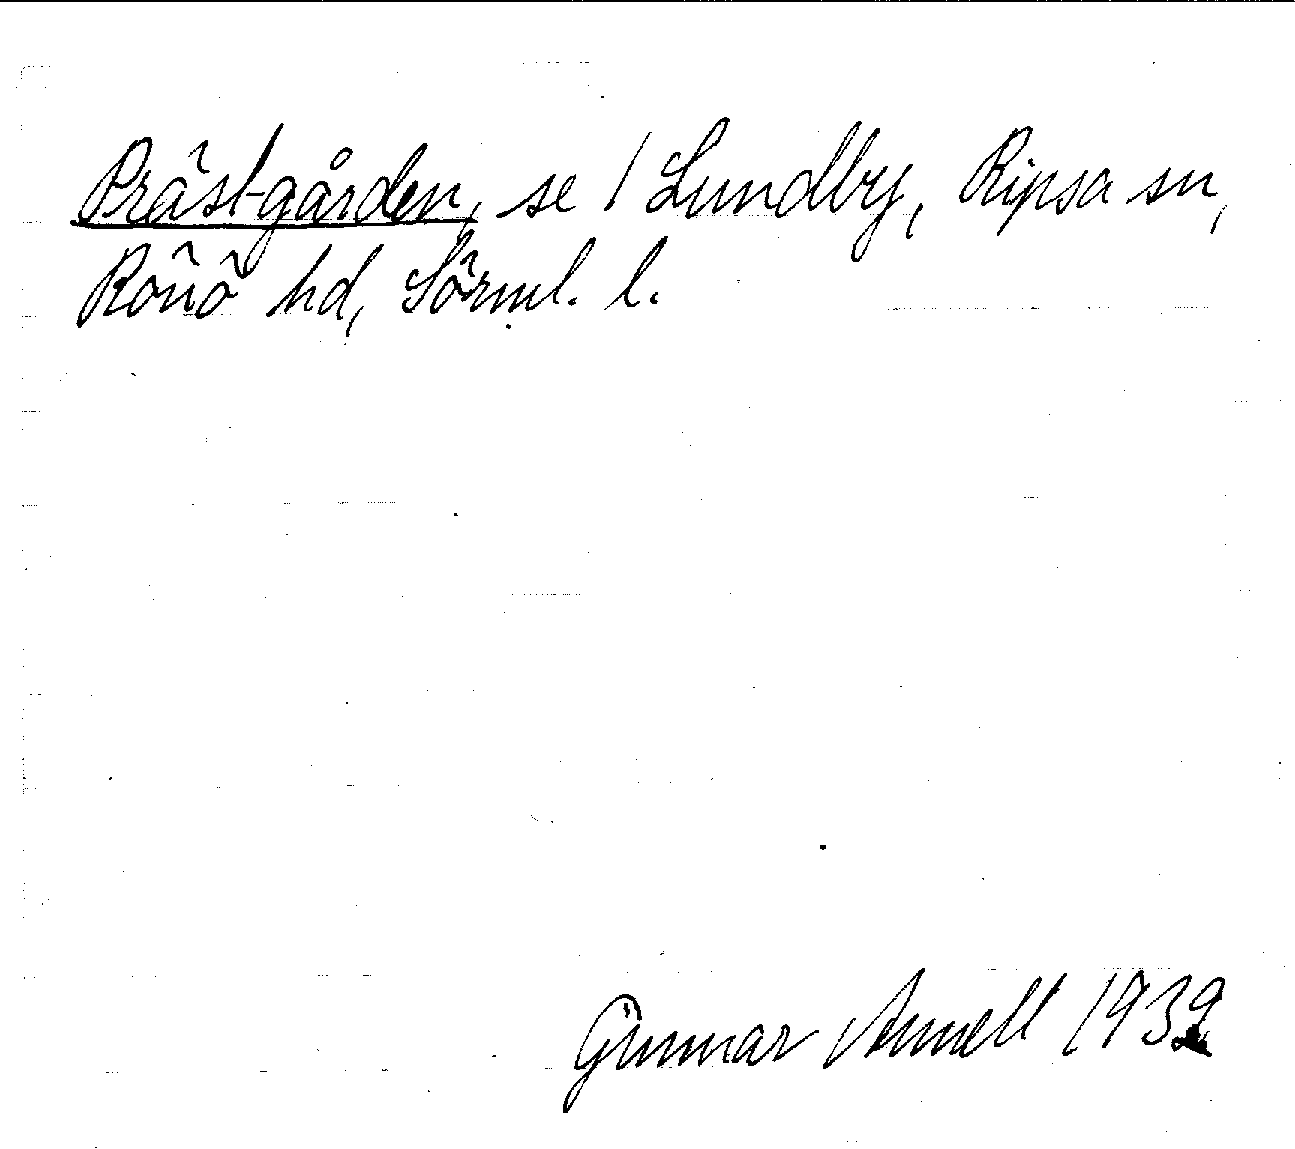 Prästgården, se / Lundby, Ripsa sn,
Rönö hd, Sörml. l.
Gunnar Annell 1932